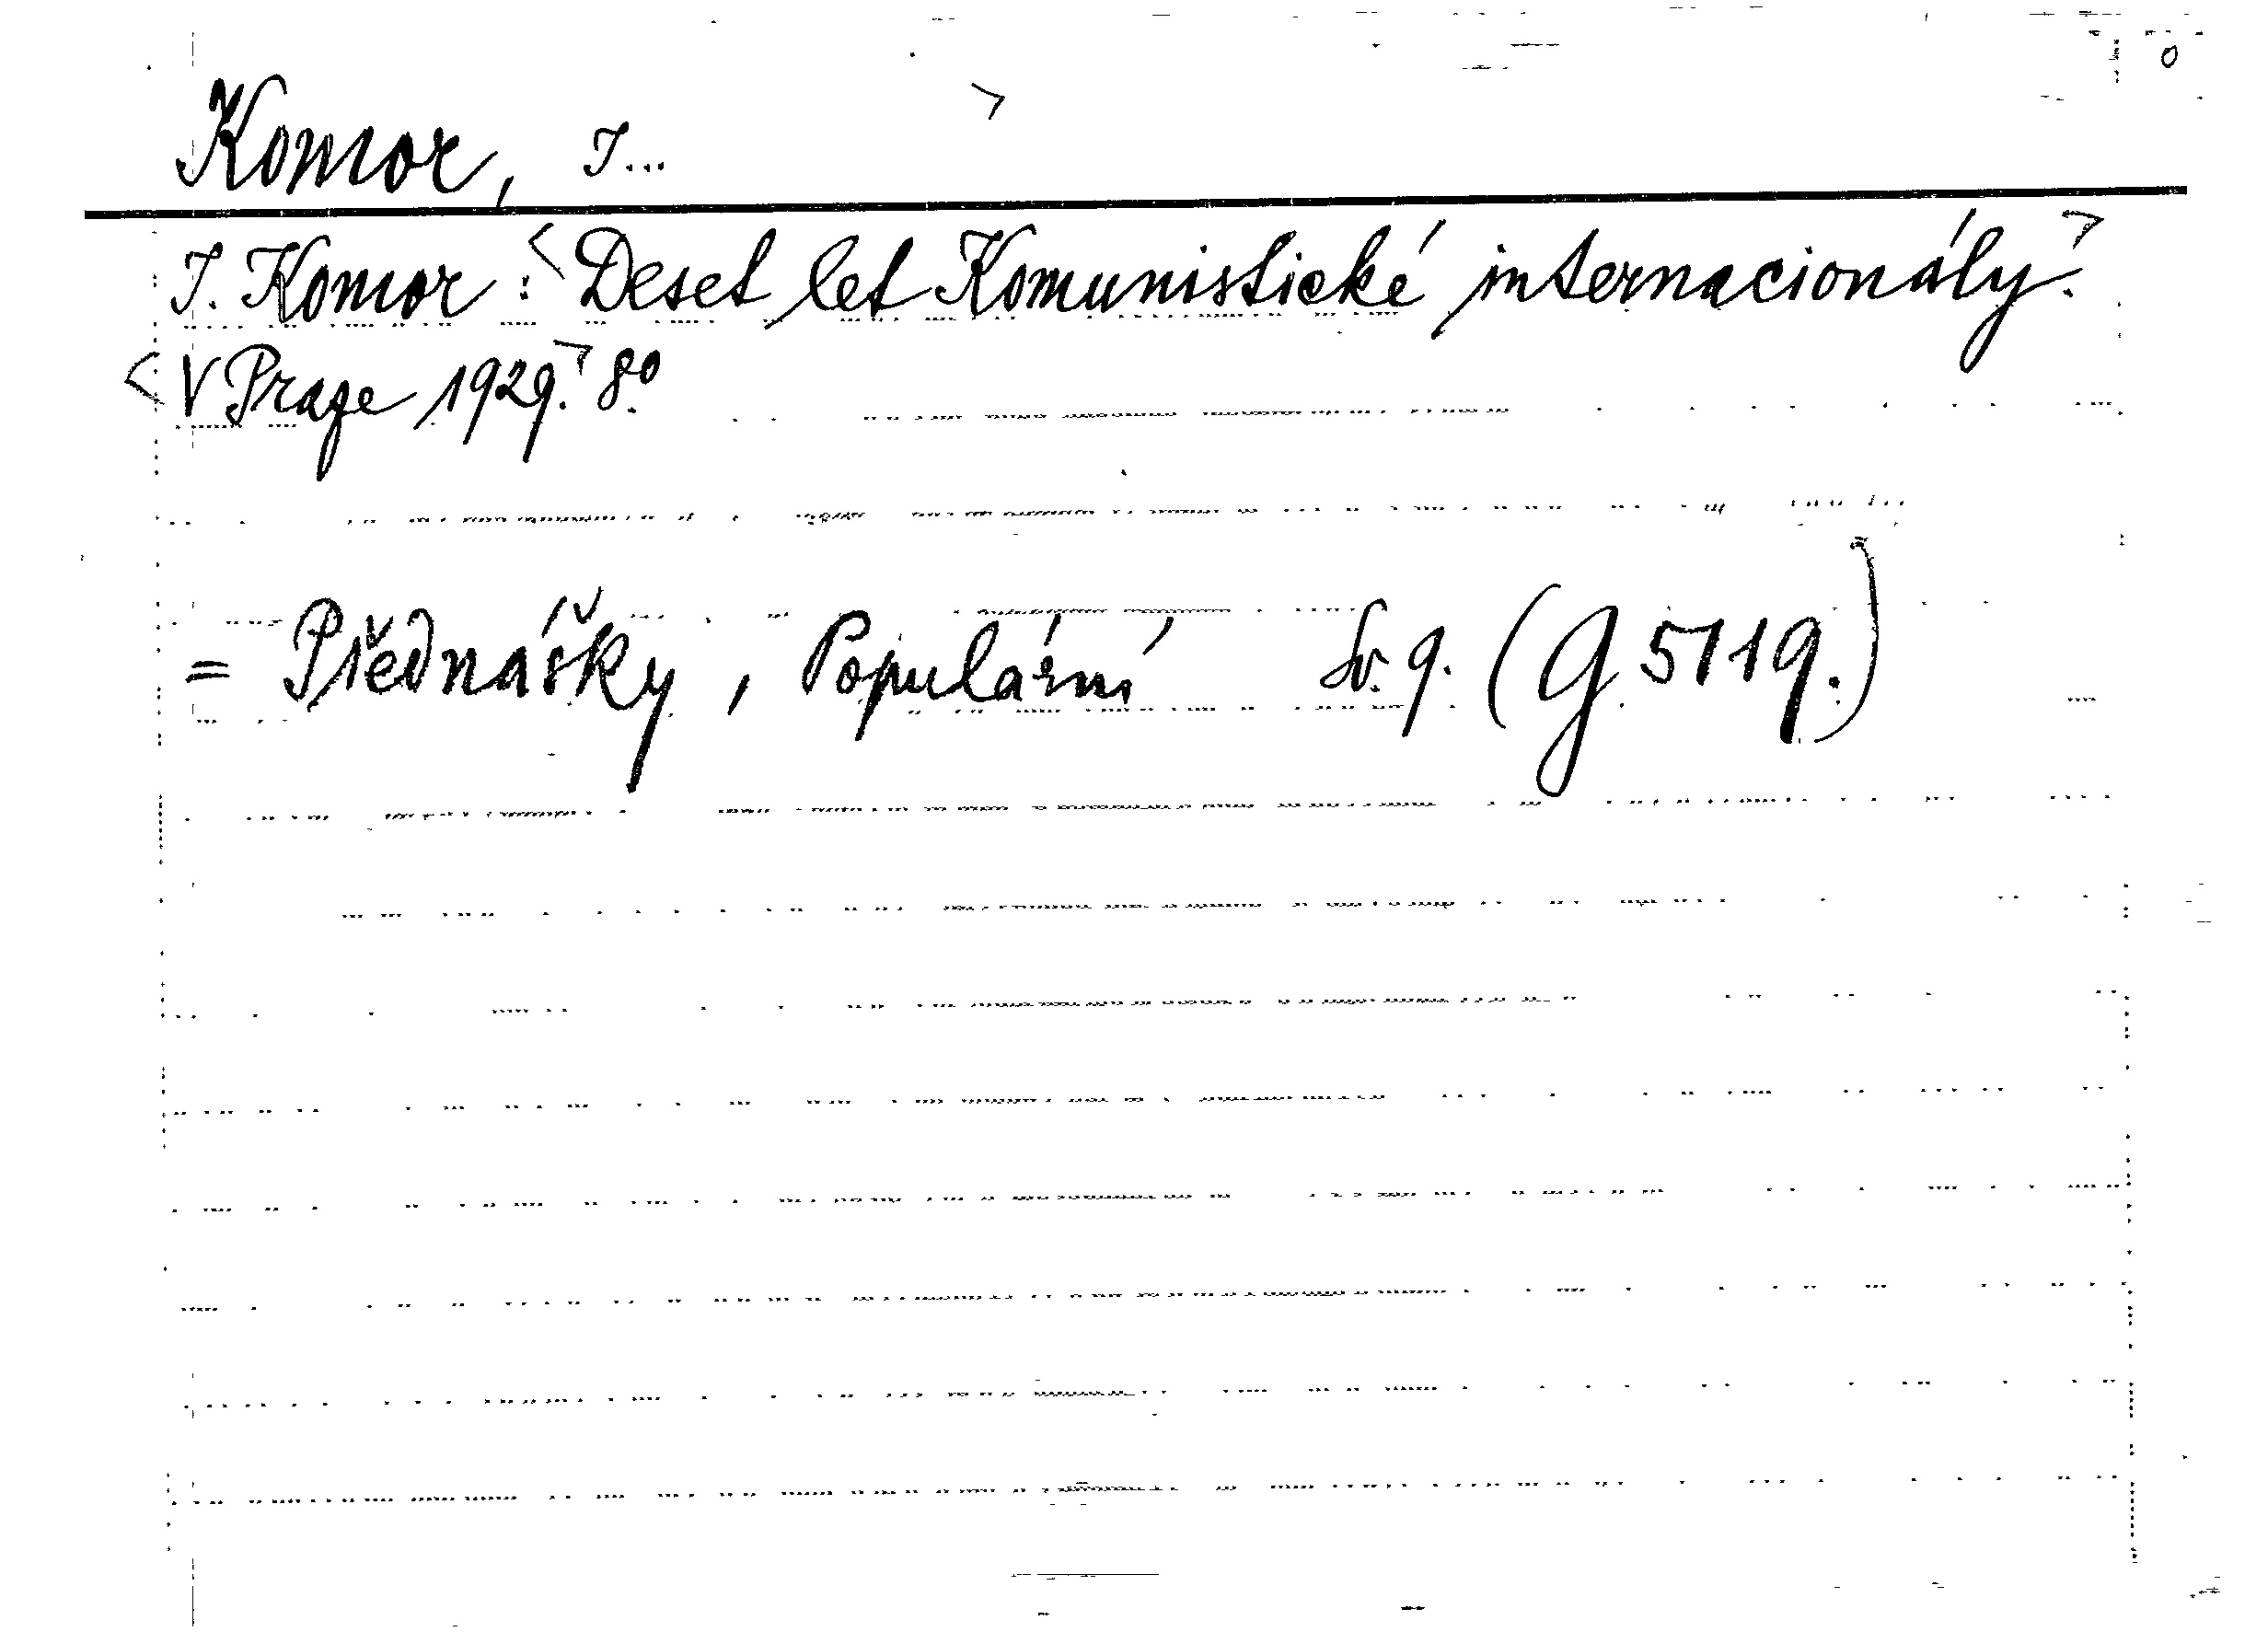 Komor, I...
I. Komor: <Deset let Komunistické internacionály.>
<V Praze 1929.> 8º.
= Přednášky, Populární Sv. 9. (G 5119.)